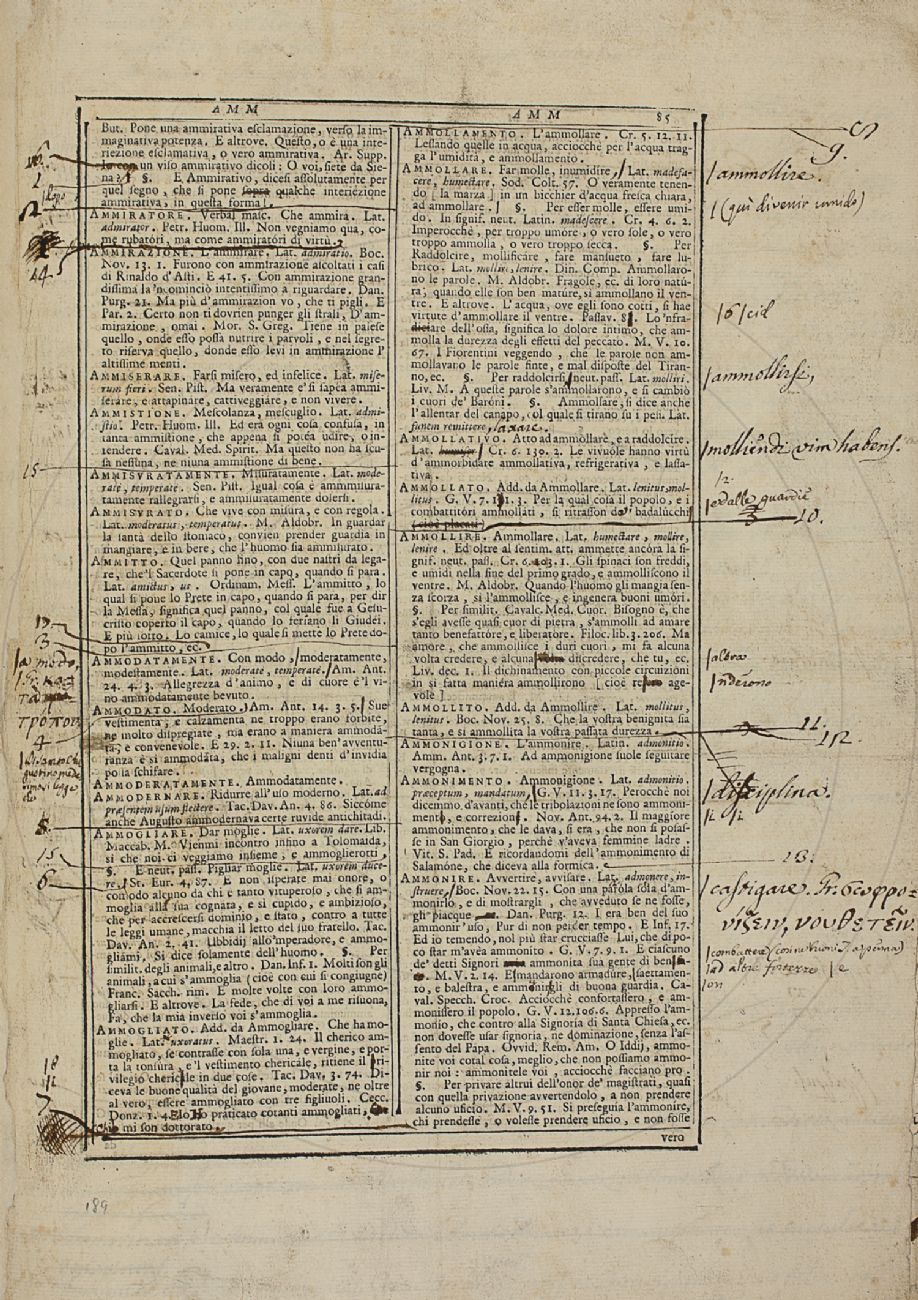 AMM
AMM 85
But. Pone una ammirativa esclamazione, verso la im-
maginativa potenza. E altrove. Questo, o è una inte-
riezione esclamativa, o vero ammirativa. Ar. Supp.
un viso ammirativo dicoli: O voi, siete da Sie-
na? §. E Ammirativo, dicesi assolutamente per
quel segno, che si pone sopra qualche interiezione
ammirativa, in questa forma!
AMMIRATORE. Verbal masc. Che ammira. Lat.
admirator. Petr. Huom. Ill. Non vegniamo qua, co-
me rubatóri, ma come ammiratóri di virtù.
AMMIRAZIONE. L'ammirare. Lat. admiratio. Boc.
Nov. 13. 1. Furono con ammirazione ascoltati i casi
di Rinaldo d'Asti. E 41. 5. Con ammirazione gran-
dissima la 'ncominciò intentissimo a riguardare. Dan.
Purg. 21. Ma più d'ammirazion vo, che ti pigli. E
Par. 2. Certo non ti dovrien punger gli strali, D'am-
mirazione, omai. Mor. S. Greg. Tiene in palese
quello, onde esso possa nutrire i parvoli, e nel segre-
to riserva quello, donde esso levi in ammirazione l'
altissime menti.
AMMISERARE. Farsi misero, ed infelice. Lat. mise-
rum fieri. Sen. Pist. Ma veramente e' si sapéa ammi-
serare, e attapinare, cattiveggiare, e non vivere.
AMMISTIONE. Mescolanza, mescuglio. Lat. admi-
stio. Petr. Huom. Ill. Ed era ogni cosa confusa, in
tanta ammistione, che appena si potéa udire, o in-
tendere. Caval. Med. Spirit. Ma questo non ha scu-
sa nessuna, ne niuna ammistione di bene.
AMMISURATAMENTE. Misuratamente. Lat. mode-
ratè, temperatè. Sen. Pist. Igual cosa è ammisura-
tamente rallegrarsi, e ammisuratamente dolersi.
AMMISURATO. Che vive con misura, e con regola.
Lat. moderatus, temperatus. M. Aldobr. In guardar
la santà dello stomaco, convien prender guardia in
mangiare, e in bere, che l'huomo sia ammisurato.
AMMITTO. Quel panno lino, con due nastri da lega-
re, che 'l Sacerdote si pone in capo, quando si para.
Lat. amictus, us. Ordinam. Mess. L'ammitto, lo
qual si pone lo Prete in capo, quando si para, per dir
la Messa, significa quel panno, col quale fue a Gesu-
cristo coperto il capo, quando lo ferìano li Giudéi.
E più sotto. Lo camice, lo quale si mette lo Prete do-
po l'ammitto, ec.
AMMODATAMENTE. Con modo, moderatamente,
modestamente. Lat. moderatè, temperatè. Am. Ant.
24. 4. 3. Allegrezza d'animo, e di cuore è 'l vi-
no ammodatamente bevuto.
AMMODATO. Moderato. Am. Ant. 14. 3. 5. Sue
vestimenta, e calzamenta ne troppo erano forbite,
ne molto dispregiate, ma erano a maniera ammoda-
ta, e convenevole. E 29. 2. 11. Niuna ben'avventu-
ranza è sì ammodata, che i maligni denti d'invidia
possa schifare.
AMMODERATAMENTE. Ammodatamente.
AMMODERNARE. Ridurre all'uso moderno. Lat. ad
præsentem usum flectere. Tac. Dav. An. 4. 86. Siccóme
anche Augusto ammodernava certe ruvide antichitadi.
AMMOGLIARE. Dar moglie. Lat. uxorem dare. Lib.
Maccab. M. Vienmi incontro infino a Tolomaida,
sì che noi ci veggiamo insieme, e ammoglierotti.
§. E neut. pass. Pigliar moglie. Lat. uxorem duce-
re. St. Eur. 4. 87. E non isperate mai onore, o
comodo alcuno da chi è tanto vituperoso, che si am-
moglia alla sua cognata, e sì cupido, e ambizioso,
che per accrescersi dominio, e stato, contro a tutte
le leggi umane, macchia il letto del suo fratello. Tac.
Dav. An. 2. 41. Ubbidij allo 'mperadore, e ammo-
gliámi. Si dice solamente dell'huomo. §. Per
similit. degli animali, e altro. Dan. Inf. 1. Molti son gli
animali, a cui s'ammoglia (cioè con cui si congiugne)
Franc. Sacch. rim. E molte volte con loro ammo-
gliarsi. E altrove. La fede, che di voi a me risuona,
Fa, che la mia inverso voi s'ammoglia.
AMMOGLIATO. Add. da Ammogliare. Che ha mo-
glie. Lat. uxoratus. Maestr. 1. 24. Il cherico am-
mogliato, se contrasse con sola una, e vergine, e por-
ta la tonsura, e 'l vestimento chericale, ritiene il pri-
vilegio chericale in due cose. Tac. Dav. 3. 74. Di-
ceva le buone qualità del giovane, moderate, ne oltre
al vero, essere ammogliato con tre figliuoli. Cecc.
Donz. 1. 4. Ho praticato cotanti ammogliati,
mi son dottorato.
AMMOLLAMENTO. L'ammollare. Cr. 5. 12. 11.
Lessando quelle in acqua, acciocchè per l'acqua trag-
ga l'umidità, e ammollamento.
AMMOLLARE. Far molle, inumidire, Lat. madefa-
cere, humectare. Sod. Colt. 57. O veramente tenen-
do [la marza] in un bicchier d'acqua fresca chiara,
ad ammollare. §. Per esser molle, essere umi-
do. In signif. neut. Latin. madescere. Cr. 4. 6. 2.
Imperocchè, per troppo umóre, o vero sole, o vero
troppo ammolla, o vero troppo secca. §. Per
Raddolcire, mollificare, fare mansueto, fare lu-
brico. Lat. mollire, lenire. Din. Comp. Ammollaro-
no le parole. M. Aldobr. Fragole, ec. di loro natu-
ra, quando elle son ben mature, si ammollano il ven-
tre. E altrove. L'acqua, ove egli sono cotti, sì hae
virtute d'ammollare il ventre. Passav. 8. Lo 'nfra-
diciare dell'ossa, significa lo dolore intimo, che am-
molla la durezza degli effetti del peccato. M. V. 10.
67. I Fiorentini veggendo, che le parole non am-
mollavano le parole finte, e mal disposte del Tiran-
no, ec. §. Per raddolcirsi, neut. pass. Lat. molliri.
Liv. M. A quelle parole s'ammollarono, e si cambiò
i cuori de' Baróni. §. Ammollare, si dice anche
l'allentar del canapo, col quale si tirano su i pesi. Lat.
funem remittere, laxare.
AMMOLLATIVO. Atto ad ammollare, e a raddolcire.
Lat. Cr. 6. 130. 2. Le vivuole hanno virtù
d'ammorbidare ammollativa, refrigerativa, e lassa-
tiva.
AMMOLLATO. Add. da Ammollare. Lat. lenitus, mol-
litus. G. V. 7. 131. 3. Per la qual cosa il popolo, e i
combattitóri ammollati, si ritrasson da' badalucchi
(cioè placati)
AMMOLLIRE. Ammollare. Lat. humectare, mollire,
lenire. Ed oltre al sentim. att. ammette ancóra la si-
gnif. neut. pass. Cr. 6. 103. 1. Gli spinaci son freddi,
e umidi nella fine del primo grado, e ammolliscono il
ventre. M. Aldobr. Quando l'huomo gli mangia sen-
za scorza, sì l'ammollisce, e ingenera buoni umóri.
§. Per similit. Cavalc. Med. Cuor. Bisogno è, che
s'egli avesse quasi cuor di pietra, s'ammolli ad amare
tanto benefattóre, e liberatore. Filoc. lib. 3. 206. Ma
amore, che ammollisce i duri cuori, mi fa alcuna
volta credere, e alcuna discredere, che tu, ec.
Liv. dec. 1. Il dichinamento con piccole circuizioni
in sì fatta maniéra ammollirono [cioè age-
vole]
AMMOLLITO. Add. da Ammollire. Lat. mollitus,
lenitus. Boc. Nov. 25. 8. Che la vostra benignità sia
tanta, e sì ammollita la vostra passata durezza.
AMMONIGIONE. L'ammonire. Latin. admonitio.
Amm. Ant. 3. 7. 1. Ad ammonigione suole seguitare
vergogna.
AMMONIMENTO. Ammonigione. Lat. admonitio,
præceptum, mandatum, G. V. 11. 3. 17. Perocchè noi
dicemmo d'avanti, che le tribolazioni ne sono ammoni-
mento, e correzione. Nov. Ant. 94. 2. Il maggiore
ammonimento, che le dava, si era, che non si posas-
se in San Giorgio, perchè v'aveva femmine ladre.
Vit. S. Pad. E ricordandomi dell'ammonimento di
Salamóne, che diceva alla formica, ec.
AMMONIRE. Avvertire, avvisare. Lat. admonere, in-
struere, Boc. Nov. 22. 15. Con una parola sola d'am-
monirlo, e di mostrargli, che avveduto se ne fosse,
gli piacque. Dan. Purg. 12. I era ben del suo
ammonir'uso, Pur di non perder tempo. E Inf. 17.
Ed io temendo, nol più star crucciasse Lui, che di po-
co star m'avéa ammonito. G. V. 7. 9. 1. E ciascuno
de' detti Signori ammonita sua gente di ben
M. V. 2. 14. E mandarono armadure, saettamen-
to, e balestra, e ammonirgli di buona guardia. Ca-
val. Specch. Croc. Acciocchè confortassero, e am-
monissero il popolo. G. V. 12. 106. 6. Appresso l'am-
monìo, che contro alla Signoria di Santa Chiesa, ec.
non dovesse usar signorìa, ne dominazione, senza l'as-
sento del Papa. Ovvid. Rem. Am. O Iddij, ammo-
nite voi cotal cosa, meglio, che non possiamo ammo-
nir noi: ammonitele voi, acciocchè facciano prò.
§. Per privare altrui dell'onor de' magistrati, quasi
con quella privazione avvertendolo, a non prendere
alcuno uficio. M. V. 9. 51. Si preseguia l'ammonire,
chi prendesse, o volesse prendere uficio, e non fosse
vero
9.
ammollire.
(quì divenir umido)
ammollirsi,
molliendi vim habens.
e dalle guardie
10.
altra
11.
12
disciplina.
13.
castigare.
νουθετεῖν.
ad altre fortezze
2
44
15
3
a modo,
τρόπον
4
15
6
18
7
189